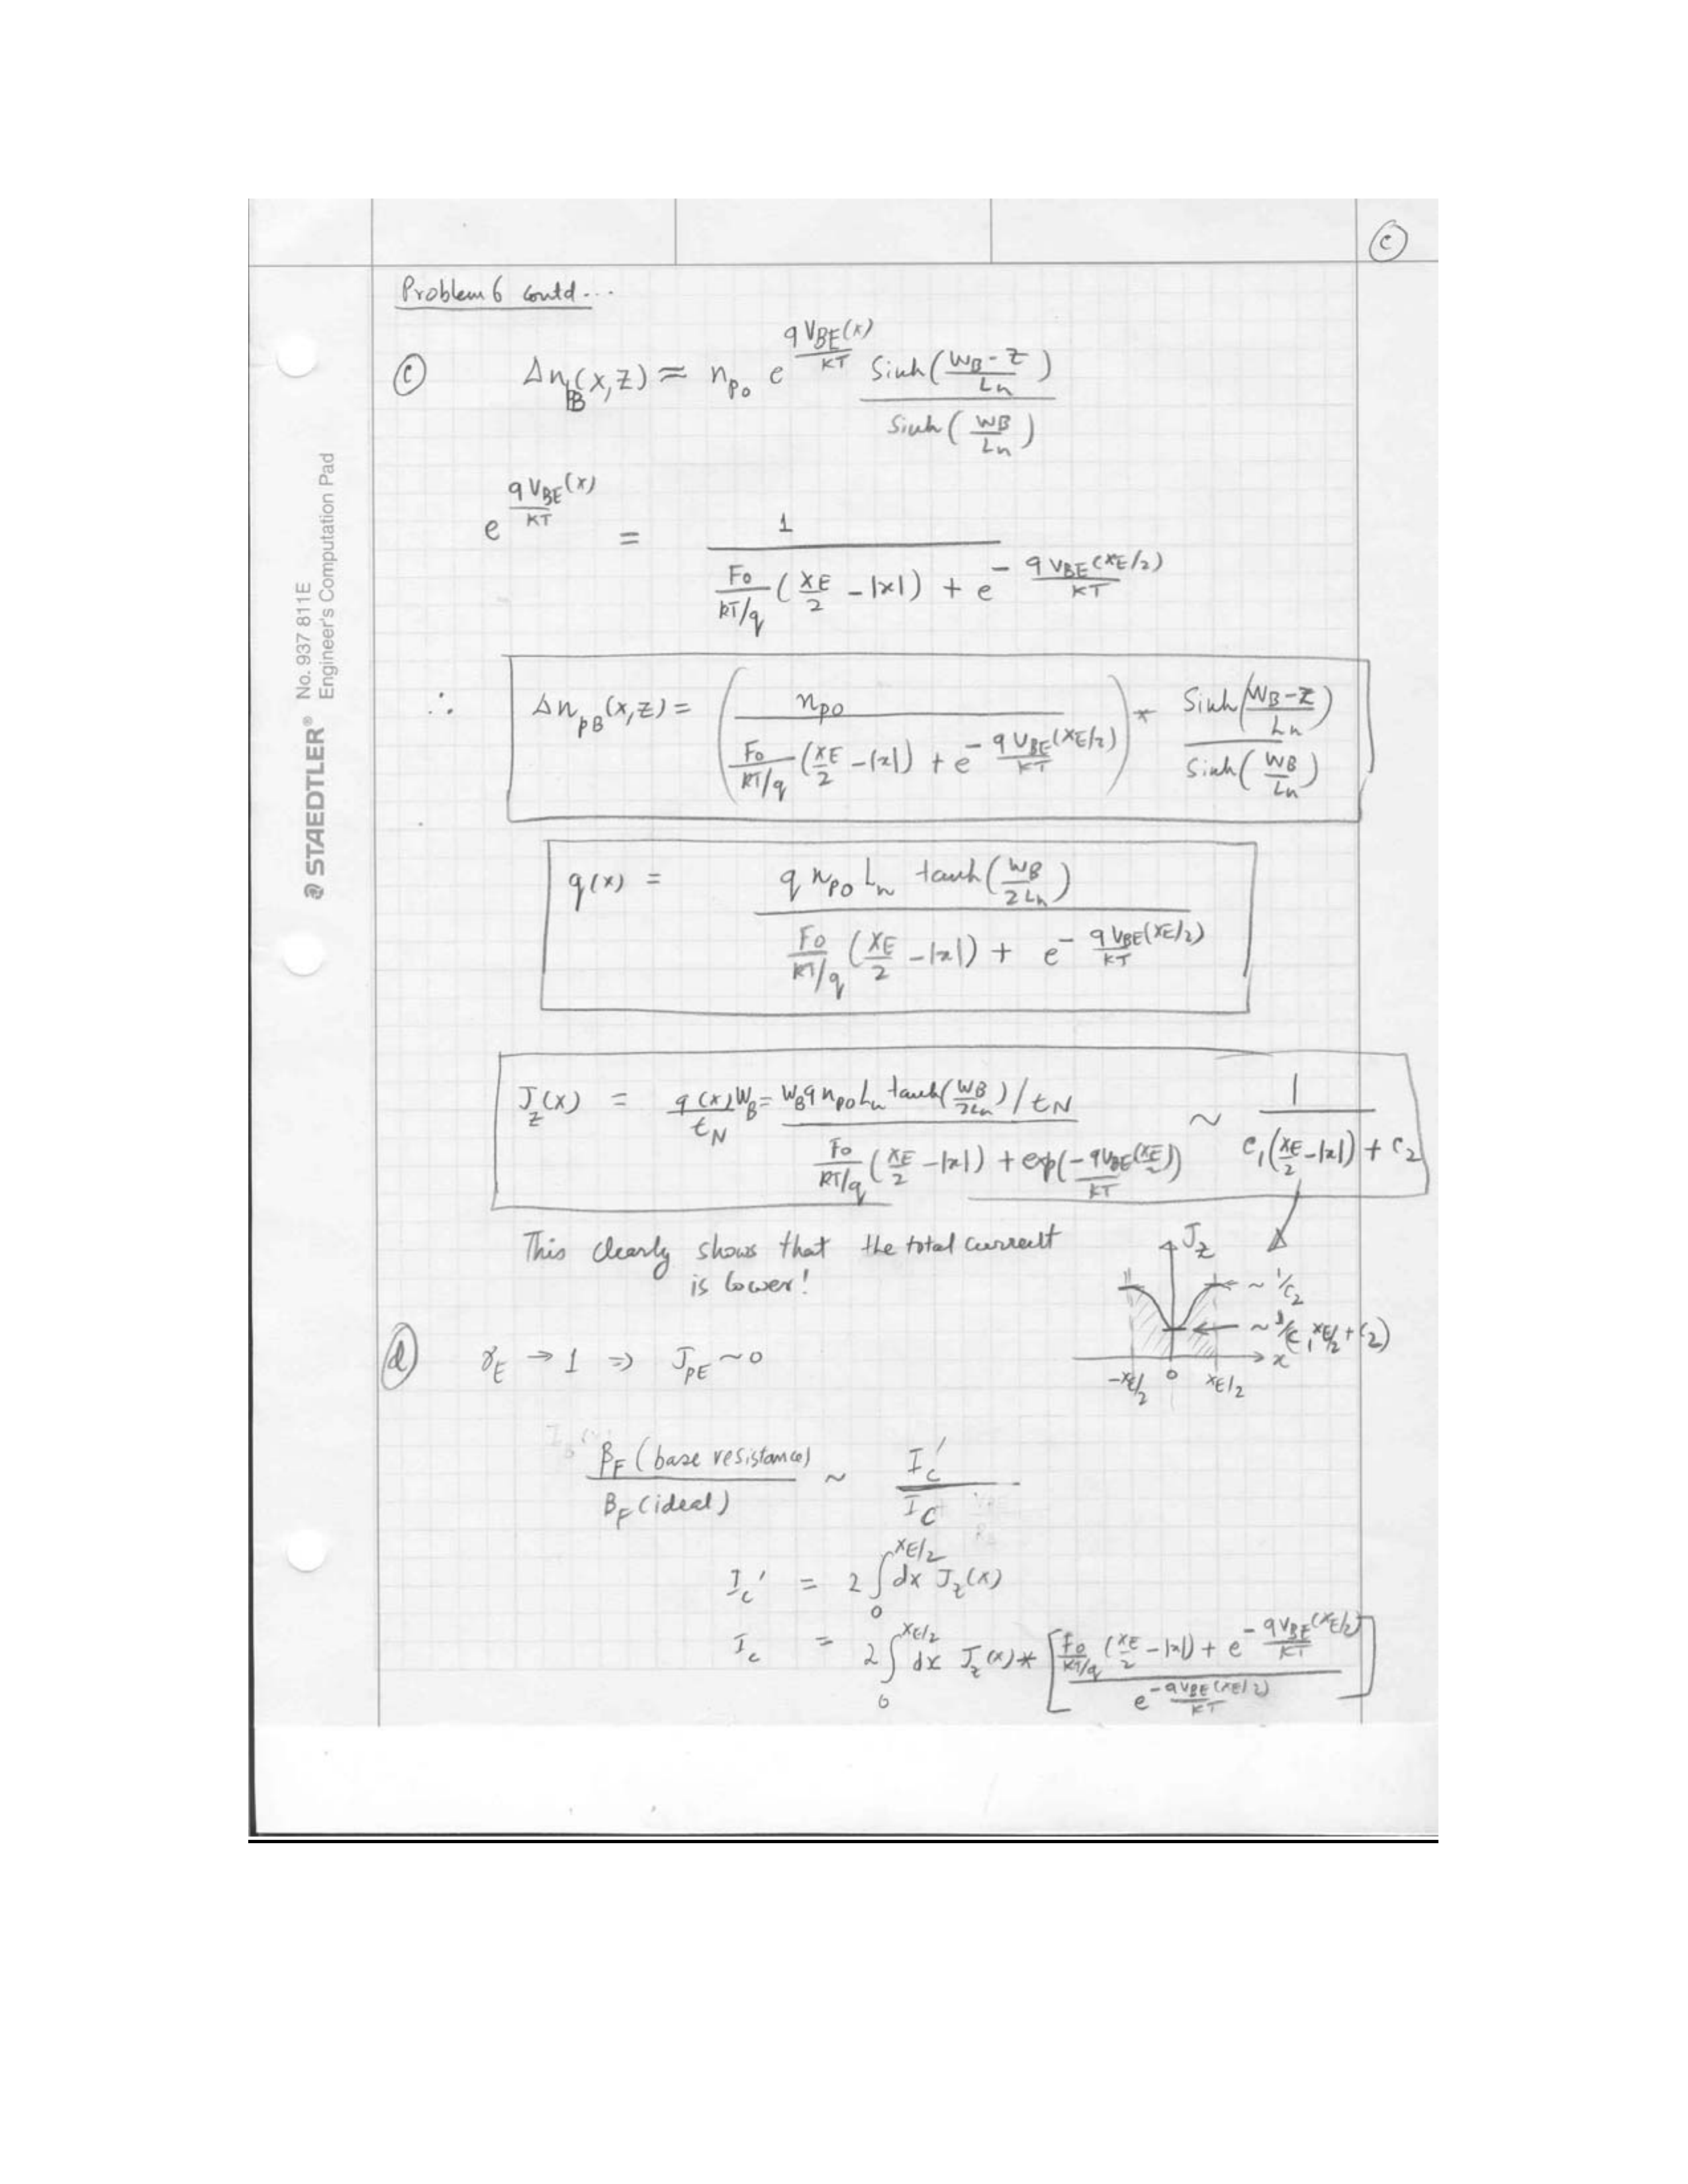 c
Problem 6 contd...
(c) Δn_pB(x,z) ≈ n_po e^(qV_BE(x)/KT) Sinh((W_B - z)/L_n) / Sinh(W_B/L_n)
e^(qV_BE(x)/KT) = 1 / [F_0/(KT/q) (x_E/2 - |x|) + e^(-qV_BE(x_E/2)/KT)]
∴ Δn_pB(x,z) = (n_po / [F_0/(KT/q) (x_E/2 - |x|) + e^(-qV_BE(x_E/2)/KT)]) * Sinh((W_B - z)/L_n) / Sinh(W_B/L_n)
q(x) = q n_po L_n tanh(W_B/2L_n) / [F_0/(KT/q) (x_E/2 - |x|) + e^(-qV_BE(x_E/2)/KT)]
J_z(x) = q(x)W_B/t_N = W_B q n_po L_n tanh(W_B/2L_n)/t_N / [F_0/(KT/q) (x_E/2 - |x|) + exp(-qV_BE(x_E/2)/KT)] ~ 1 / [c_1(x_E/2 - |x|) + c_2]
This clearly shows that the total current
is lower!
J_z
~ 1/c_2
~ 1/(c_1 x_E/2 + c_2)
x
-x_E/2 0 x_E/2
(d) γ_E → 1 ⇒ J_pE ~ 0
β_F (base resistance) / β_F (ideal) ~ I_c' / I_c
I_c' = 2 ∫_0^(x_E/2) dx J_z(x)
I_c = 2 ∫_0^(x_E/2) dx J_z(x) * [ (F_0/(KT/q) (x_E/2 - |x|) + e^(-qV_BE(x_E/2)/KT)) / e^(-qV_BE(x_E/2)/KT) ]
STAEDTLER® No. 937 811E
Engineer's Computation Pad